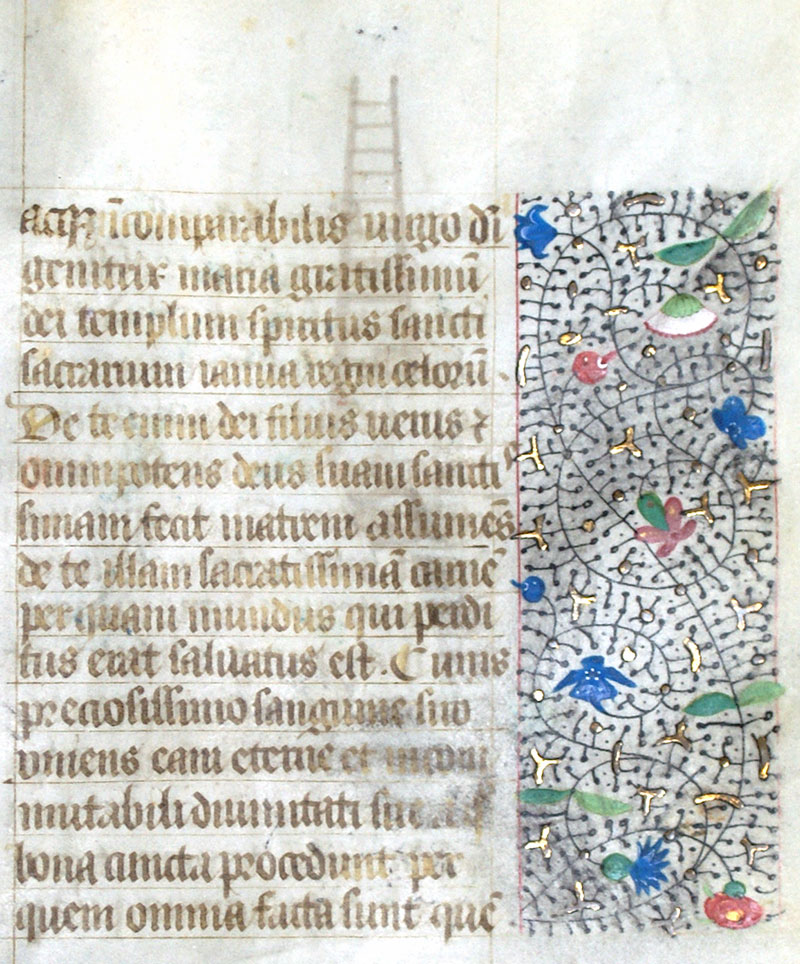 īcomparabilis uirgo dī
genitrix maria gratissimū
dei templum spiritus sancti
sacrarium ianua regni celorū.
De te enim dei filius uerus ⁊
omnipotens deus suam sancti
simam fecit matrem assumēs
de te illam sacratissimā carnē
per quam mundus qui perdi
tus erat saluatus est. Cuius
preciosissimo sanguine suo
vniens eam eterne et incom
mutabili diuinitati
bona cuncta procedunt per
quem omnia facta sunt quē